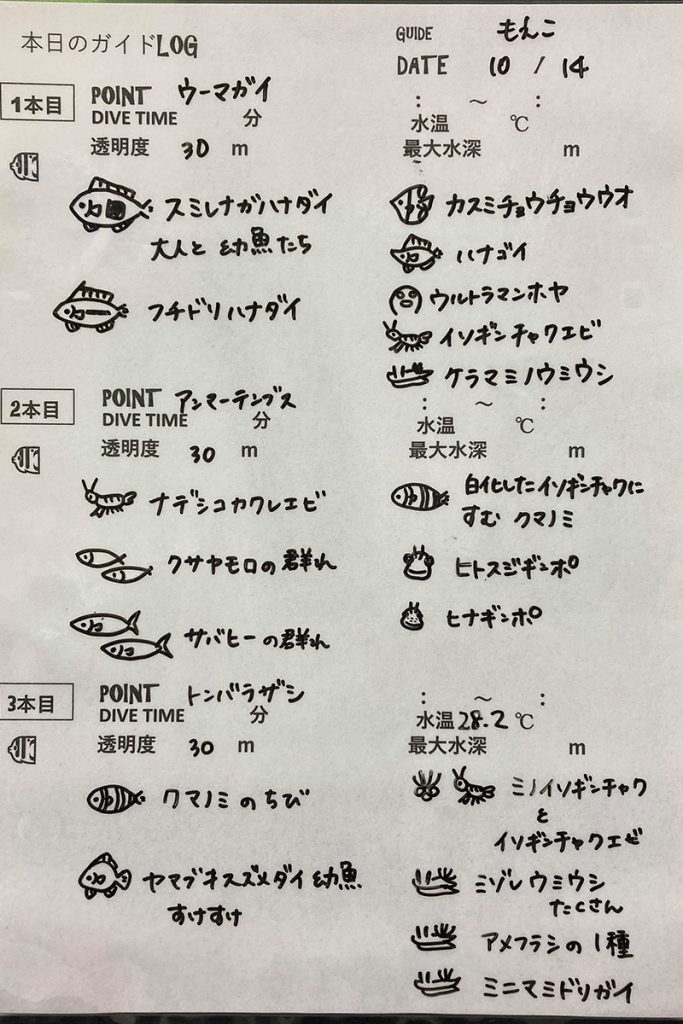 本日のガイドLOG
GUIDE もえこ
DATE 10 / 14
1本目 POINT ウーマガイ
DIVE TIME 分
透明度 30 m
: ～ :
水温 ℃
最大水深 m
スミレナガハナダイ
大人と幼魚たち
フチドリハナダイ
カスミチョウチョウウオ
ハナゴイ
ウルトラマンホヤ
イソギンチャクエビ
ケラマミノウミウシ
2本目 POINT アンマーテンブス
DIVE TIME 分
透明度 30 m
: ～ :
水温 ℃
最大水深 m
ナデシコカクレエビ
クサヤモロの群れ
サバヒーの群れ
白化したイソギンチャクに
すむ クマノミ
ヒトスジギンポ
ヒナギンポ
3本目 POINT トンバラザシ
DIVE TIME 分
透明度 30 m
: ～ :
水温 28.2 ℃
最大水深 m
クマノミのちび
ヤマブキスズメダイ 幼魚
すけすけ
ミノイソギンチャク
と
イソギンチャクエビ
ミゾレウミウシ
たくさん
アメフラシの1種
ミニマミドリガイ